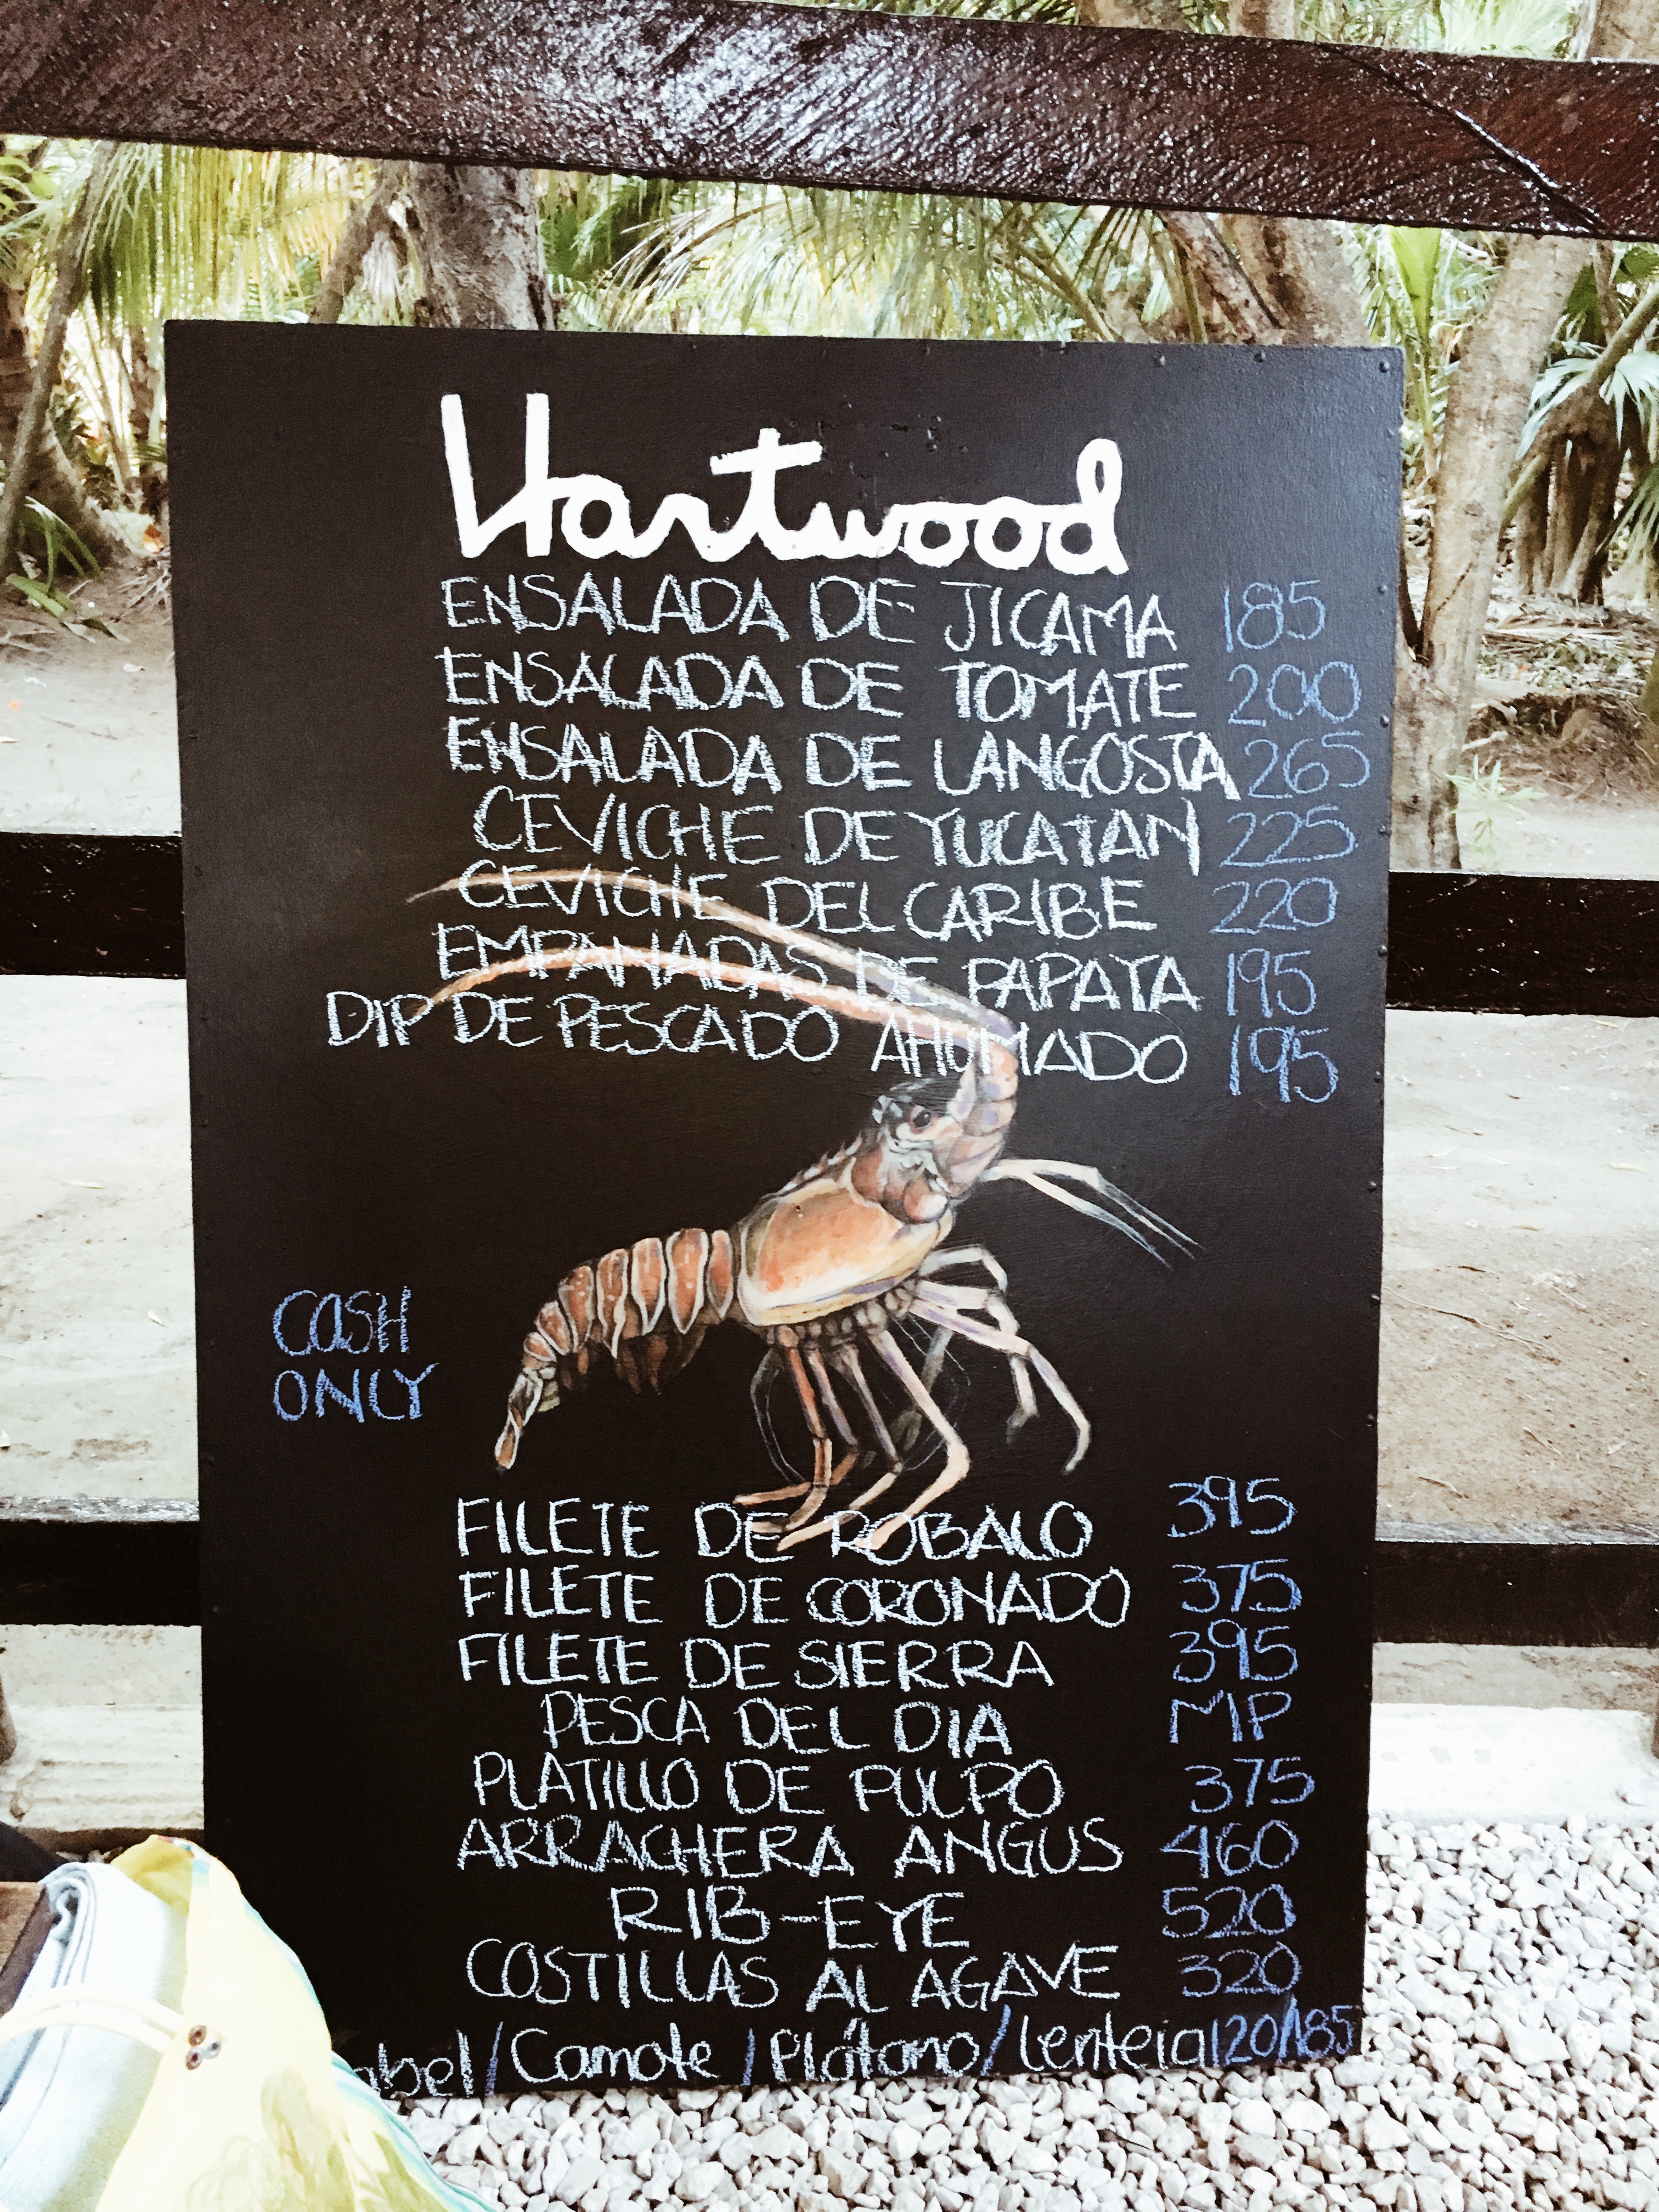 Hartwood
ENSALADA DE JICAMA 185
ENSALADA DE TOMATE 200
ENSALADA DE LANGOSTA 265
CEVICHE DE YUCATAN 225
CEVICHE DEL CARIBE 220
EMPANADAS DE PAPATA 195
DIP DE PESCADO AHUMADO 195
CASH
ONLY
FILETE DE ROBALO 395
FILETE DE CORONADO 375
FILETE DE SIERRA 395
PESCA DEL DIA MP
PLATILLO DE PULPO 375
ARRACHERA ANGUS 460
RIB-EYE 520
COSTILLAS AL AGAVE 320
/Camote/Plátano/Lenteja 120/185